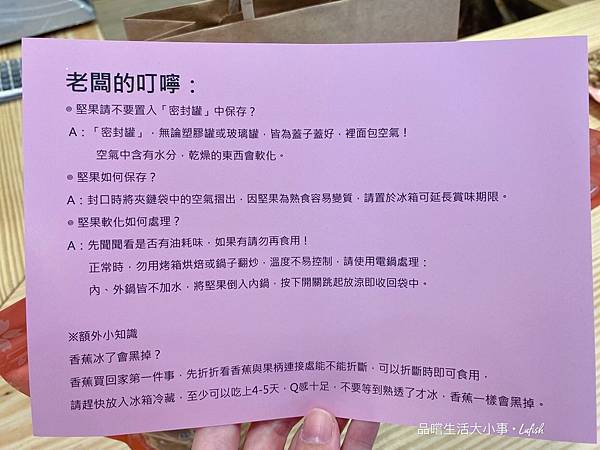 老闆的叮嚀：
◎ 堅果請不要置入「密封罐」中保存？
A：「密封罐」，無論塑膠罐或玻璃罐，皆為蓋子蓋好，裡面包空氣！
空氣中含有水分，乾燥的東西會軟化。
◎ 堅果如何保存？
A：封口時將夾鏈袋中的空氣摺出，因堅果為熟食容易變質，請置於冰箱可延長賞味期限。
◎ 堅果軟化如何處理？
A：先聞聞看是否有油耗味，如果有請勿再食用！
正常時，勿用烤箱烘焙或鍋子翻炒，溫度不易控制，請使用電鍋處理：
內、外鍋皆不加水，將堅果倒入內鍋，按下開關跳起放涼即收回袋中。
※額外小知識
香蕉冰了會黑掉？
香蕉買回家第一件事，先折折看香蕉與果柄連接處能不能折斷，可以折斷時即可食用，
請趕快放入冰箱冷藏，至少可以吃上4-5天，Q感十足，不要等到熟透了才冰，香蕉一樣會黑掉。
品嚐生活大小事・Lufish